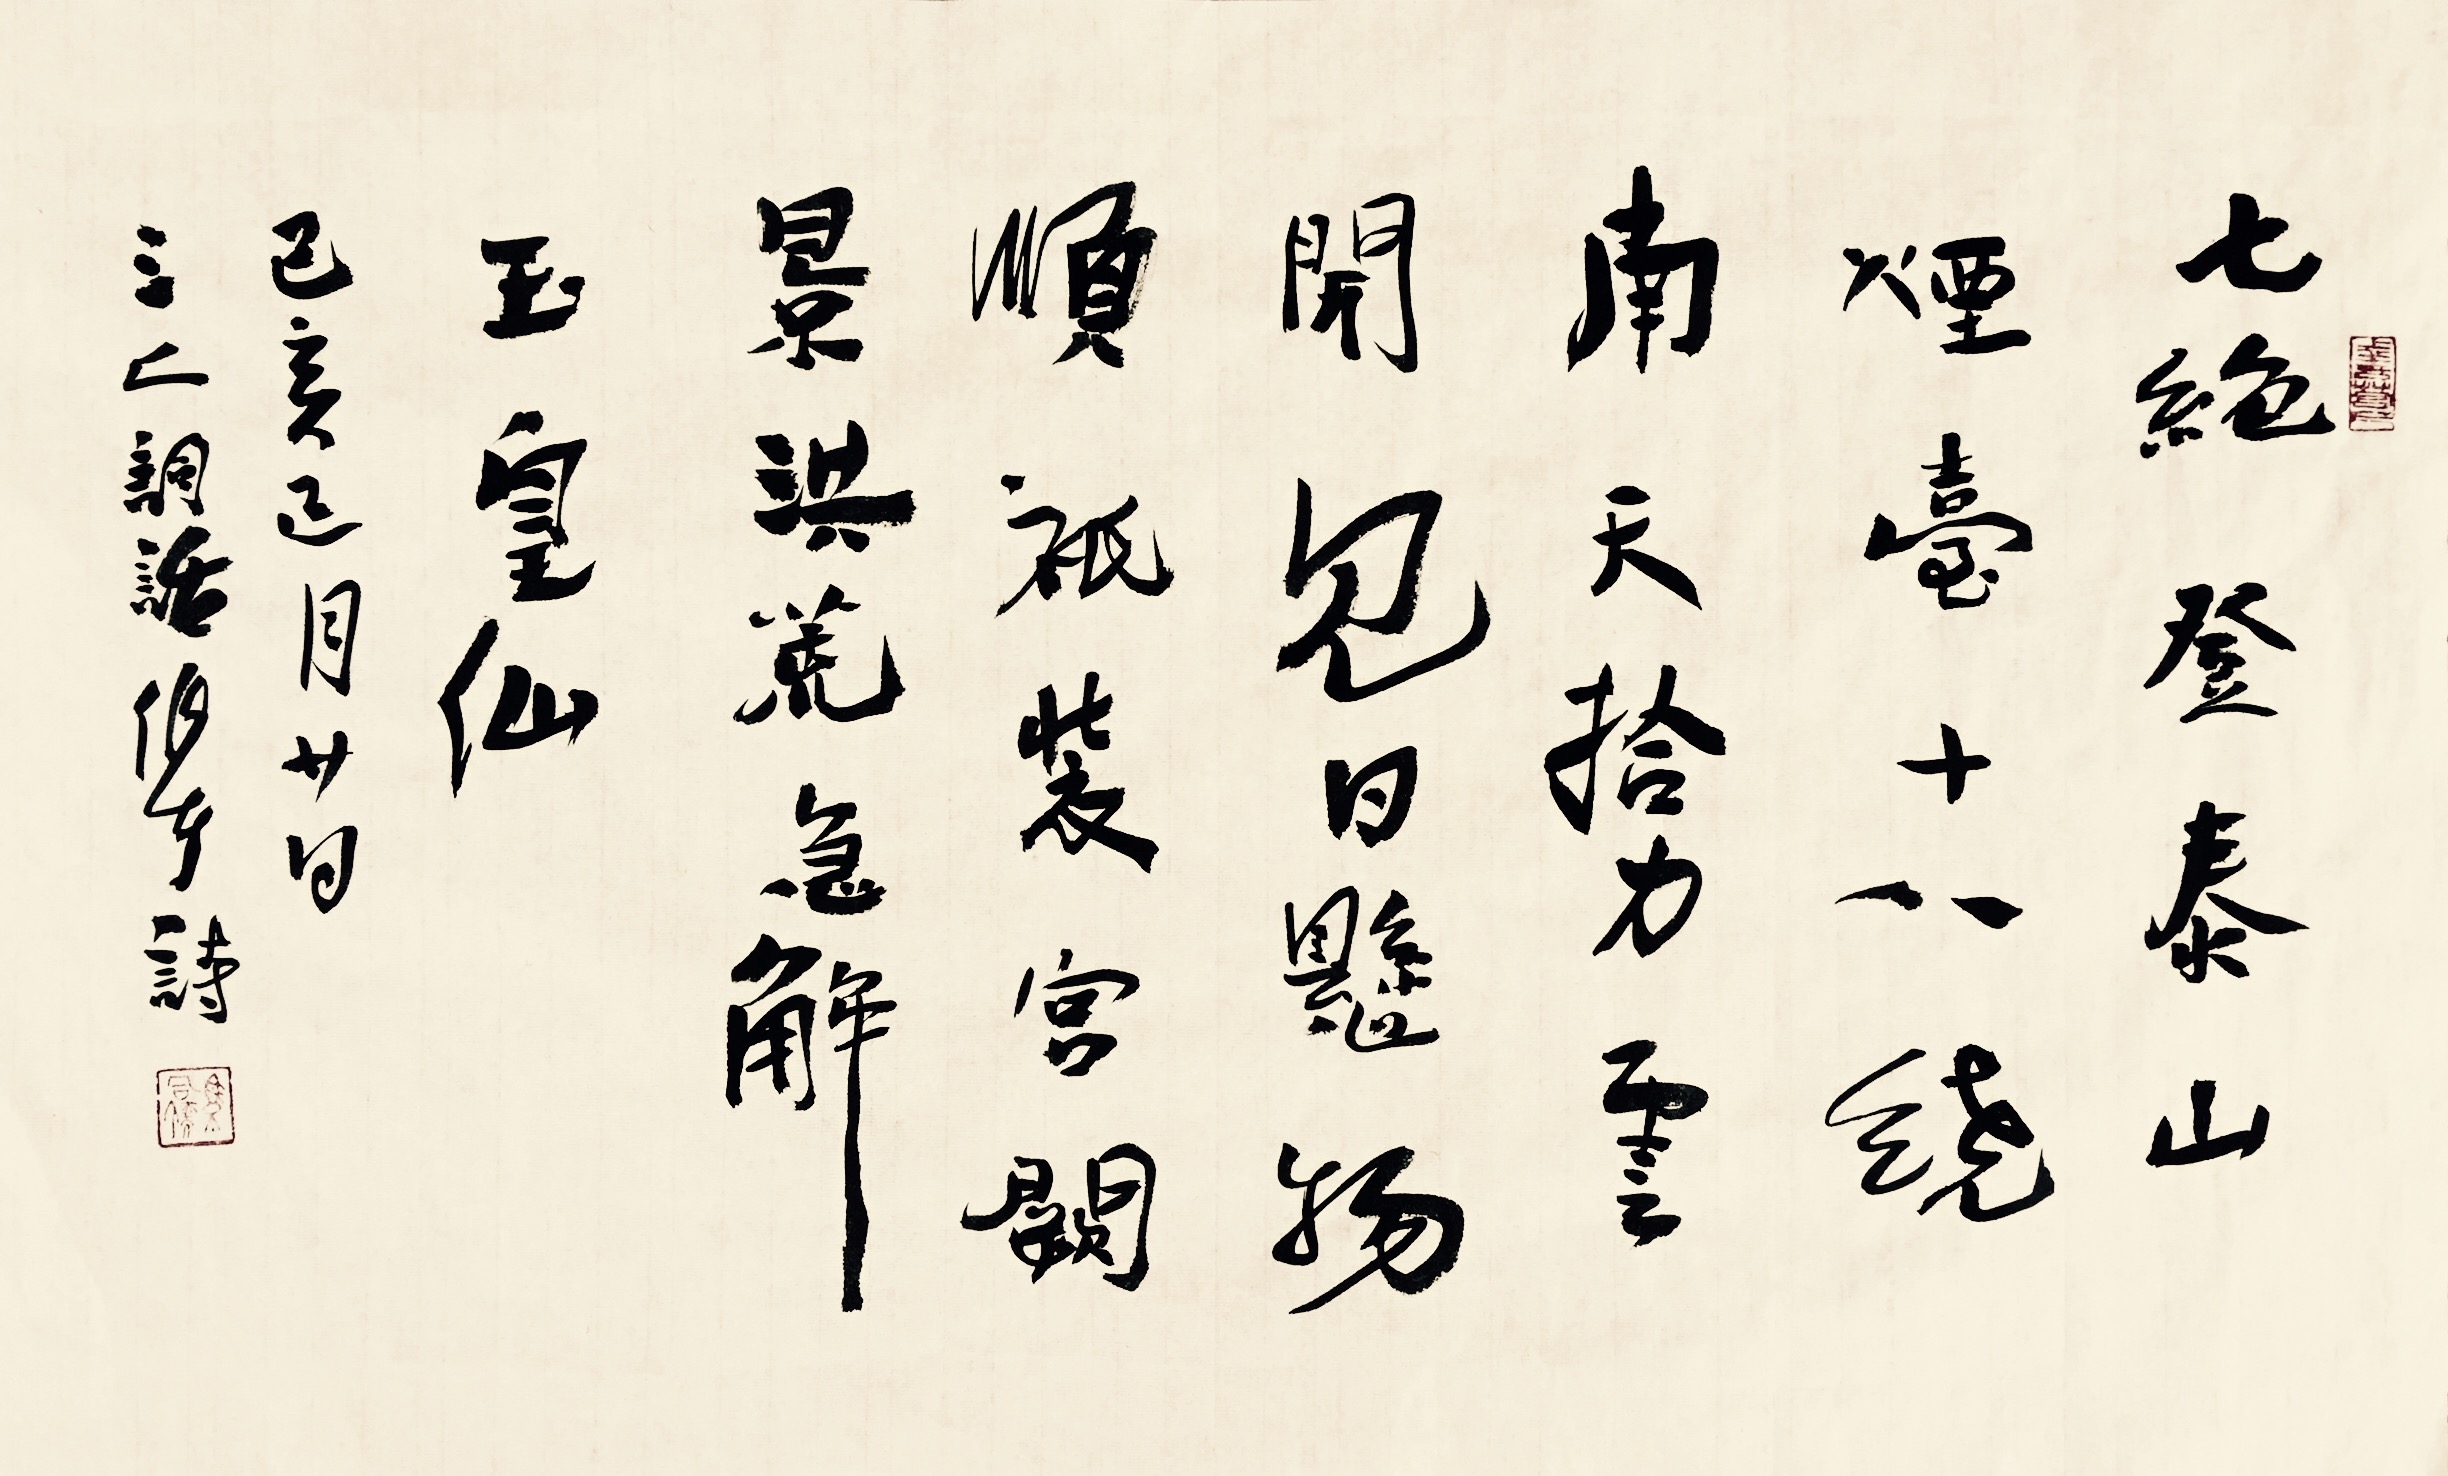 七絶登泰山
煙臺十八繞
南天拾力雲
開見日懸物
順祇裝宮闕
景洪荒急解
玉皇仙
己亥巳月廿日
三上詞話 詩